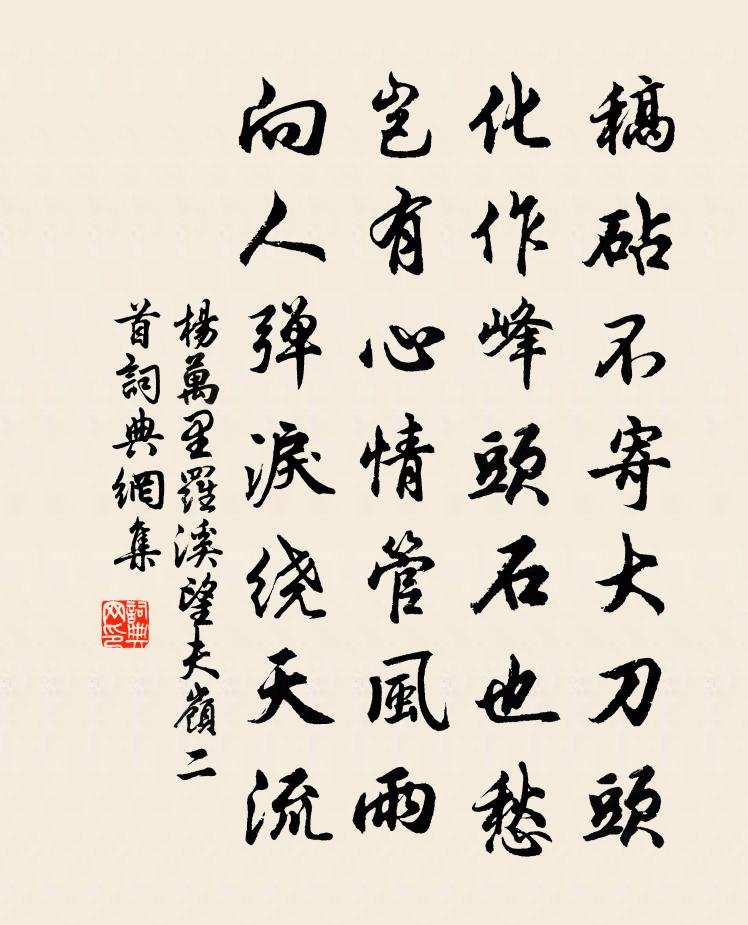 稿砧不寄大刀頭
化作峰頭石也愁
岂有心情管風雨
向人弹淚绕天流
楊萬里羅溪望夫嶺二
首詞典網集
詞典
网印